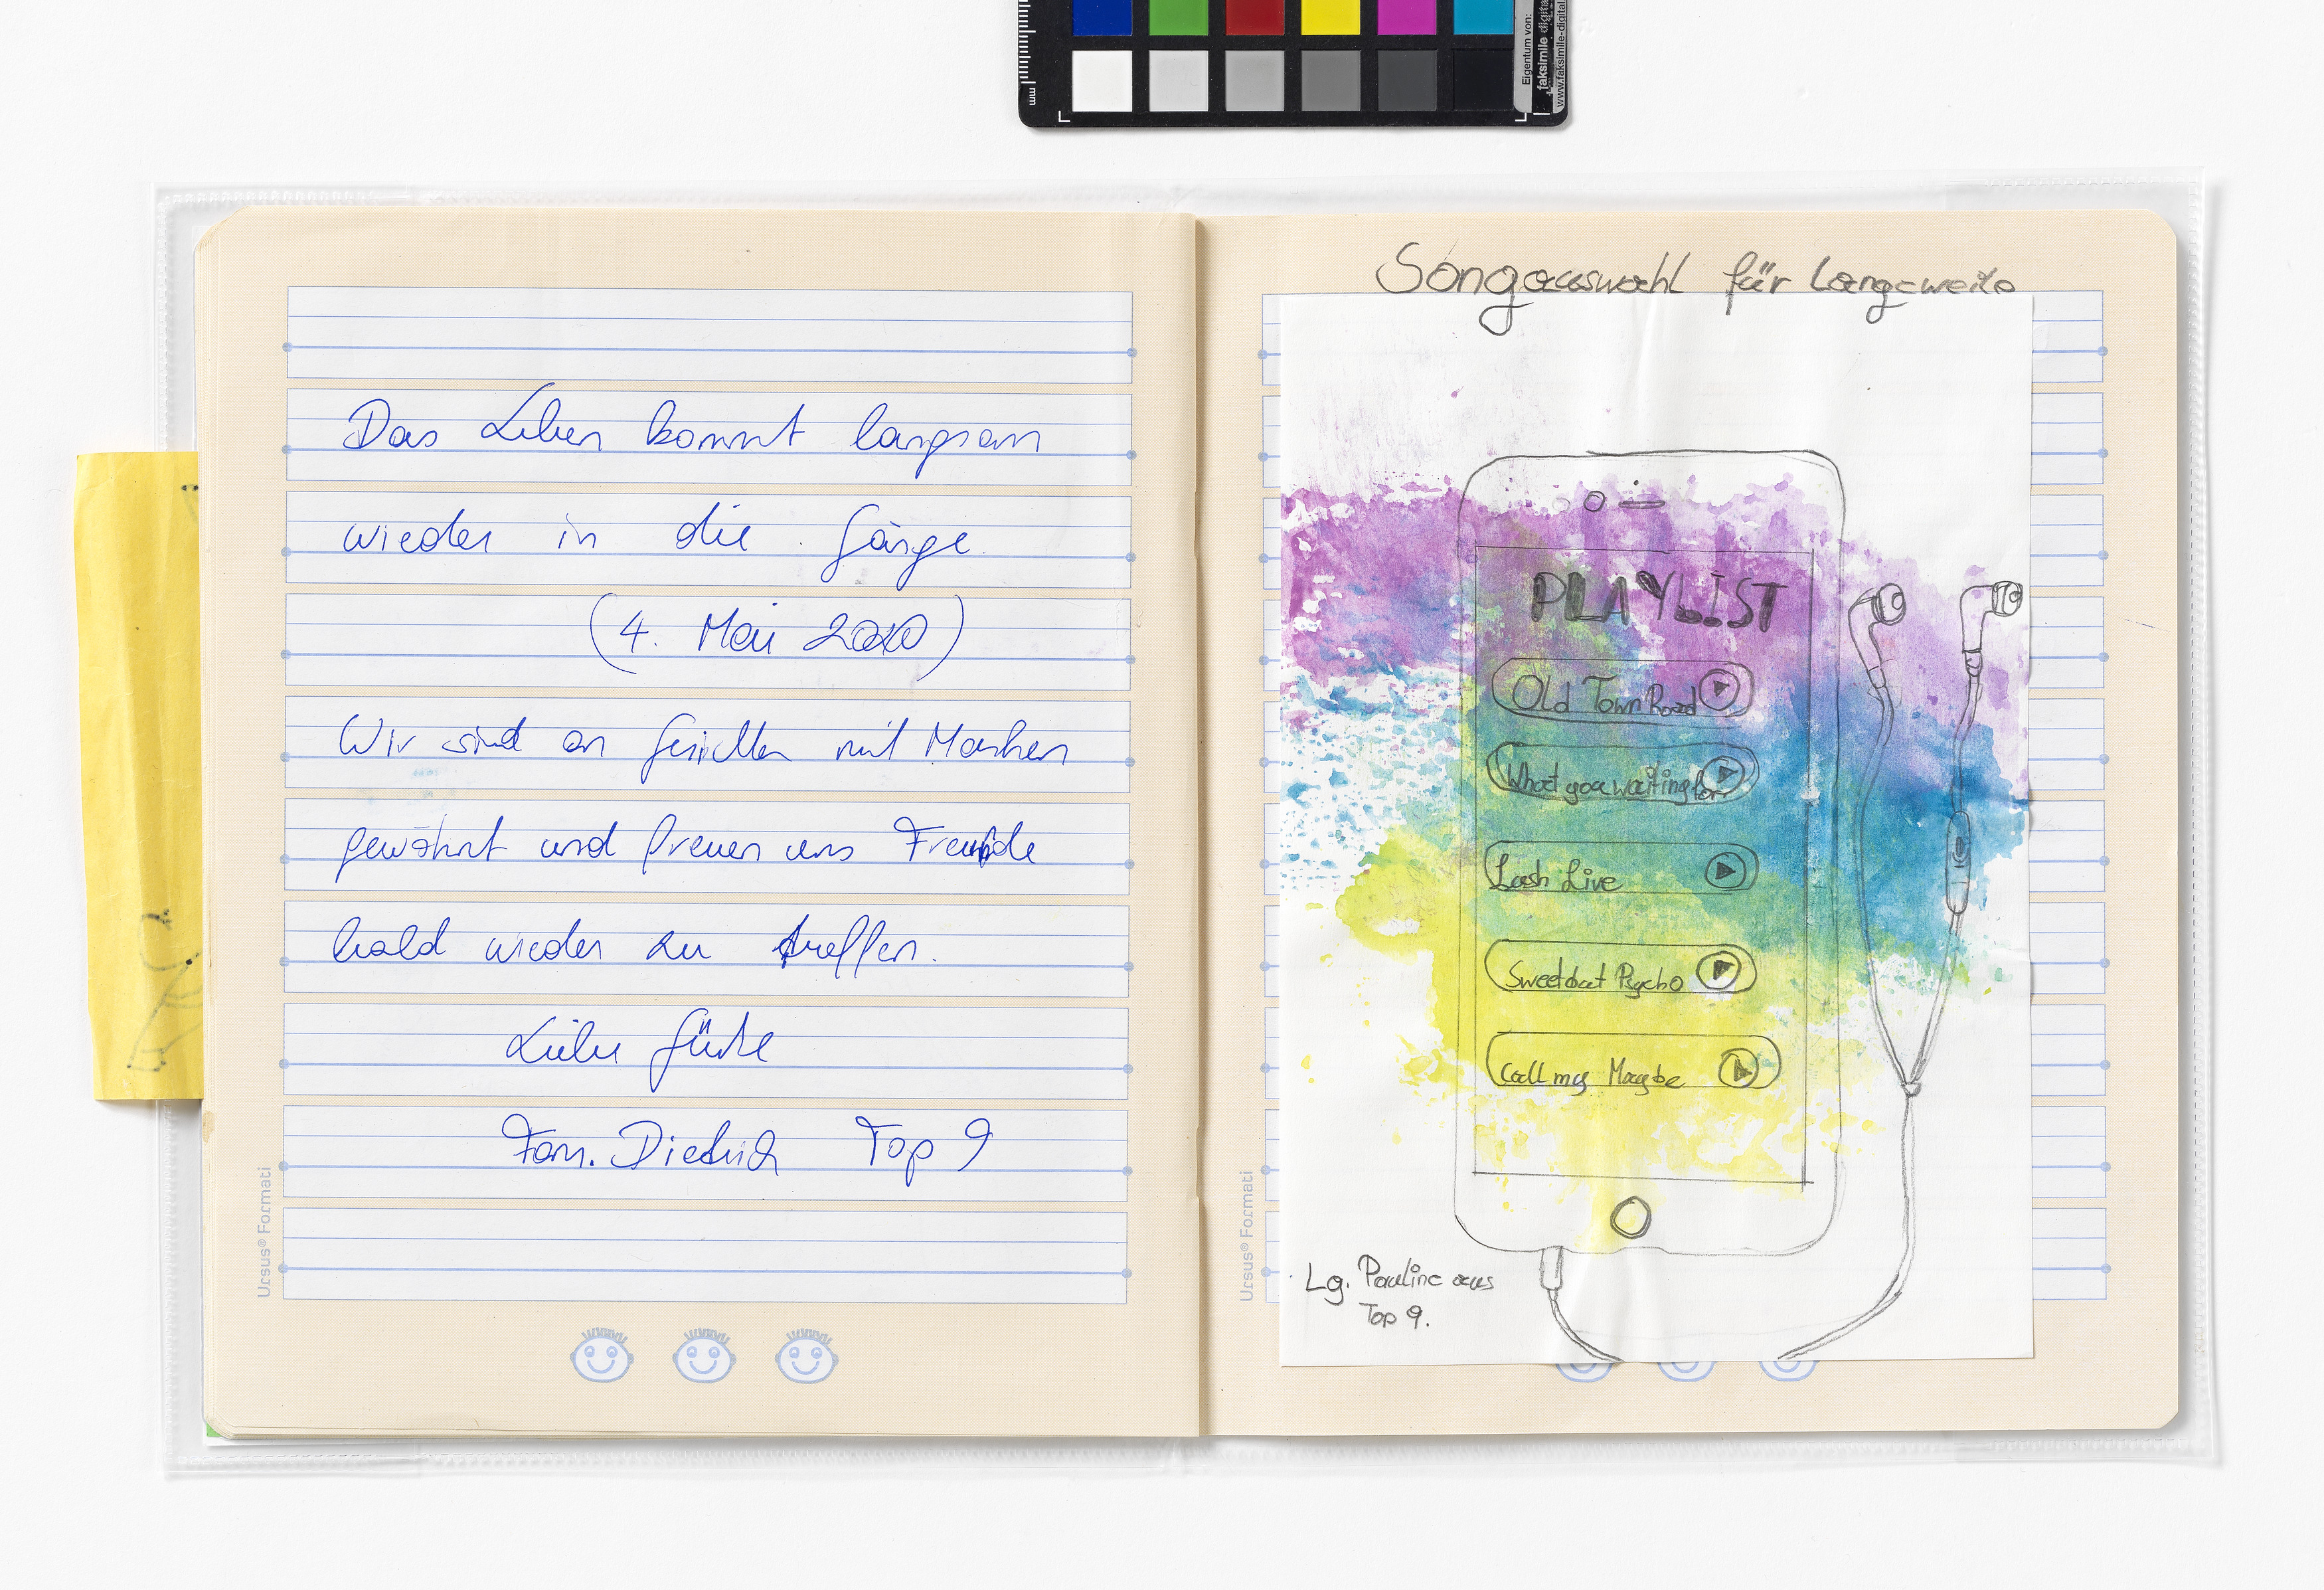 Eigentum von:
faksimile digital
www.faksimile-digital
mm
Das Leben kommt langsam
wieder in die Gänge.
(4. Mai 2020)
Wir sind an Gesichter mit Masken
gewöhnt und freuen uns Freunde
bald wieder zu treffen.
Liebe Grüße
Fam. Dietrich Top 9
Ursus® Formati
Songauswahl für Langeweile
PLAYLIST
Old Town Road
What you waiting for
Lash Live
Sweet but Psycho
Call my Maybe
Lg. Pauline aus
Top 9.
Ursus® Formati